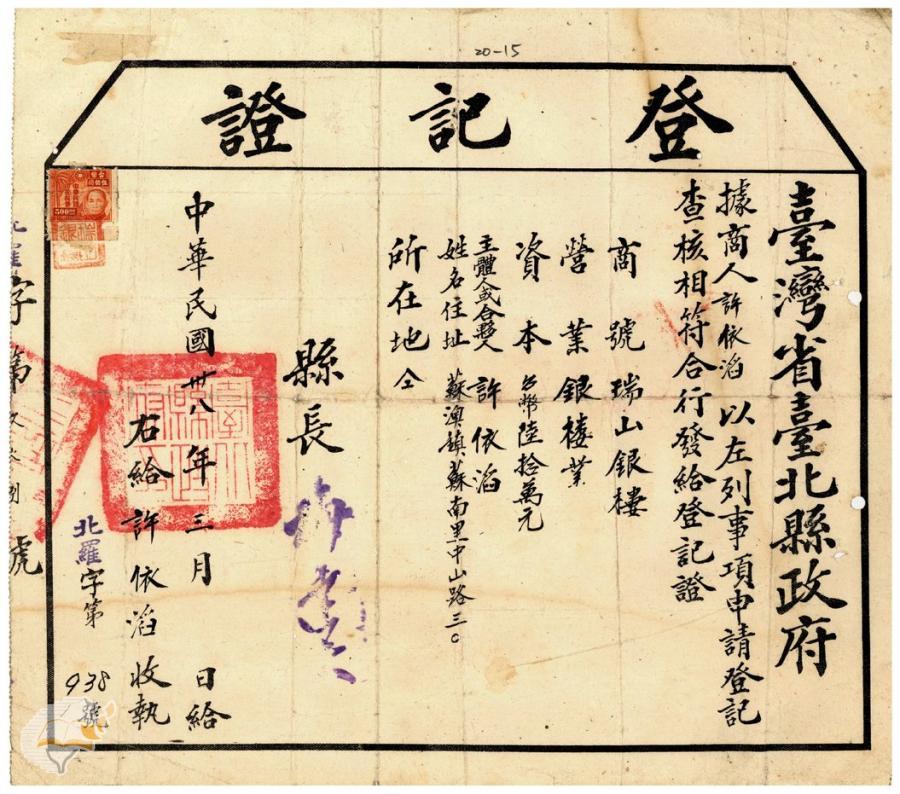 20-15
登記證
臺灣省臺北縣政府
據商人許依滔以左列事項申請登記
查核相符合行發給登記證
商號瑞山銀樓
營業銀楼業
資本台幣陸拾萬元
主體人或合夥人許依滔
姓名住址蘇澳鎮蘇南里中山路三〇
所在地仝
縣長
中華民國卅八年三月 日給
右給許依滔收執
北羅字第938號
北羅字第 號
500